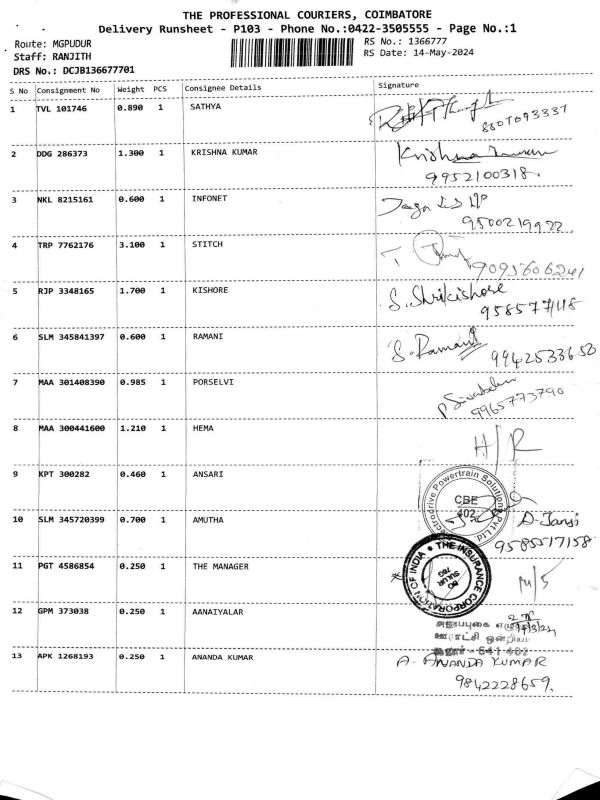 THE PROFESSIONAL COURIERS, COIMBATORE
Delivery Runsheet - P103 - Phone No.:0422-3505555 - Page No.:1
Route: MGPUDUR RS No.: 1366777
Staff: RANJITH RS Date: 14-May-2024
DRS No.: DCJB136677701
S No Consignment No Weight PCS Consignee Details Signature
1 TVL 101746 0.890 1 SATHYA
8807093337
2 DDG 286373 1.300 1 KRISHNA KUMAR Krishna Kumar
9952100318.
3 NKL 8215161 0.600 1 INFONET
9500219922
4 TRP 7762176 3.100 1 STITCH T
9095606241
5 RJP 3348165 1.700 1 KISHORE S. Shrikishore
958577118
6 SLM 345841397 0.600 1 RAMANI S. Ramani
9942533650
7 MAA 301408390 0.985 1 PORSELVI
9965773790
8 MAA 300441600 1.210 1 HEMA H/R
9 KPT 300282 0.460 1 ANSARI
Electrodrive Powertrain Solutions Pvt Ltd
CBE
402
10 SLM 345720399 0.700 1 AMUTHA D. Jansi
9585517158
11 PGT 4586854 0.250 1 THE MANAGER M/S
THE INSURANCE CORPORATION OF INDIA
BO
SULUR
76G
12 GPM 373038 0.250 1 AANAIYALAR
13 APK 1268193 0.250 1 ANANDA KUMAR A. ANANDA KUMAR
9842228659.